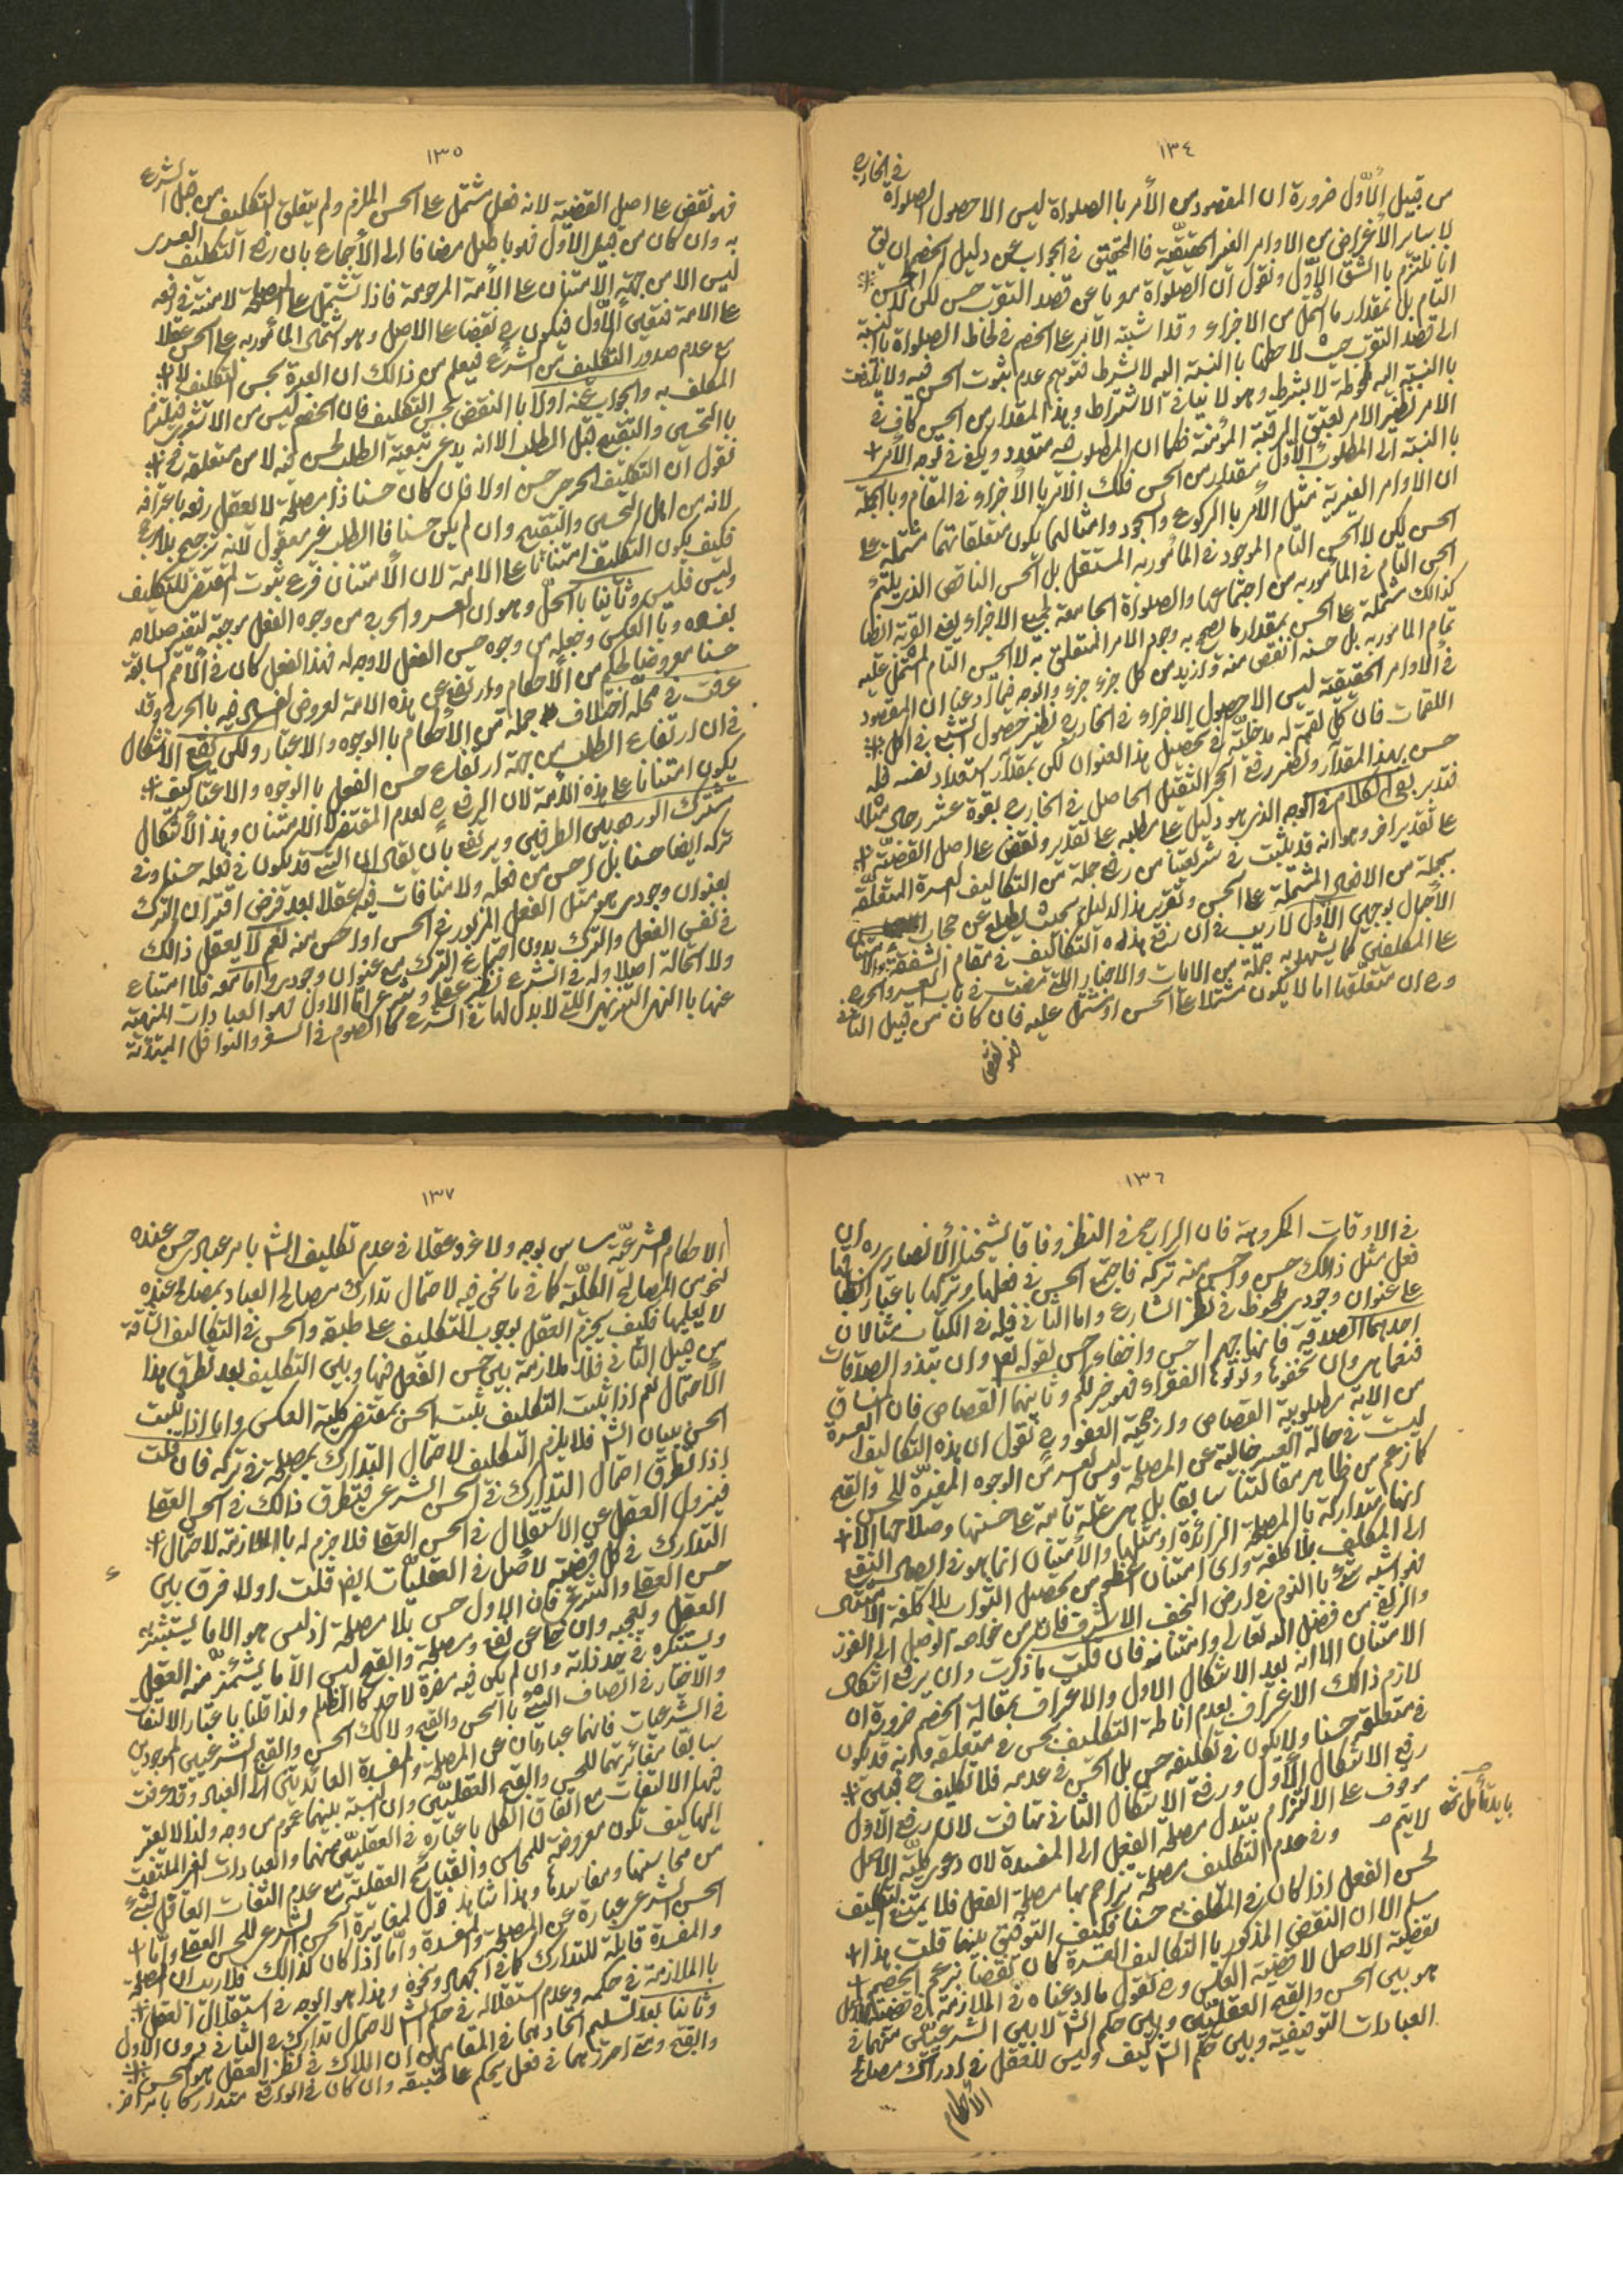 ١٣٤
من قبيل الأول ضرورة ان المقصود من الأمر باالصلواة ليس الا حصول الصلواة في الخارج
لا ساير الأغراض من الاوامر الغير الحقيقية فاالتحقيق في الجواب عن دليل الخصم ان يق
انا نلتزم باالشق الأول ونقول ان الصلواة معرياً عن قصد التقرب حسن لكن لا كل الحسن
التام بل بمقدار ما اشتمل من الاجزاء وقد اشتبه الأمر على الخصم في لحاظ الصلواة باالنسبة
الى قصد التقرب حيث لاحظها باالنسبة اليه لا بشرط فتوهم عدم ثبوت الحسن فيه ولا
باالنسبة اليه ملحوظة لا بشرط وهو لا ينافي الاشتراط وبهذا المقدار من الحسن كاف في
الامر نظير الامر بعتق الرقبة المؤمنة فكما ان المطلوب فيه متعدد ويكفي في توجه الأمر
باالنسبة الى المطلوب الأول بمقدار من الحسن فكك الامر باالأجزاء في المقام وباالجملة
ان الاوامر الغيرية مثل الأمر باالركوع والسجود وامثالهما يكون متعلقاتها مشتملة على
الحسن لكن لا الحسن التام الموجود في المأمور به المستقل بل الحسن الناقص الذي يلتئم
الحسن التام في المأمور به من اجتماعها والصلواة الجامعة لجميع الاجزاء بغير القربة ايضا
كذالك مشتملة على الحسن بمقدار ما يصح به وجه الامر المتعلق به لا الحسن التام المشتمل عليه
تمام المأمور به بل حسنه انقص منه وازيد من كل جزء جزء والوجه فيما ادعينا ان المقصود
في الاوامر الحقيقية ليس الا حصول الاجزاء في الخارج نظير حصول الشبع في اكل
اللقمات فان كل لقمة له مدخلية في تحصيل هذا العنوان لكن بمقدار استعداد نفسه فله
حسن بهذا المقدار ونظير رفع الحجر الثقيل الحاصل في الخارج بقوة عشر رجال مثلا
فتدبر بقى الكلام في الوجه الذي هو دليل على مطلبه على تقدير ونقض على اصل القضية
على تقدير اخر وهو انه قد يثبت في شريعتنا من رفع جملة من التكاليف لعسرة المتعلقة
بجملة من الافعال المشتملة على الحسن وتقرير هذا الدليل بحيث يطلع عن حجاب
الأجمال بوجهين الأول لا ريب في ان رفع هذه التكاليف في مقام الشفقة والامتنان
على المكلفين كما يشهد به جملة من الايات والاخبار التي مضت في باب العسر والحرج
و ح ان متعلقها اما لا يكون مشتملا على الحسن او مشتمل عليه فان كان من قبيل الثاني
فهو نقض
١٣٥
فهو نقض على اصل القضية لانه فعل مشتمل على الحسن الملزم ولم يتعلق التكليف من قبل الشرع
به وان كان من قبيل الأول فهو باطل مضافا الى الأجماع بان رفع التكليف العسري
ليس الا من جهة الأمتنان على الأمة المرحومة فاذا تشتمل على المصلحة لا منة في رفعه
على الامة فتعين الأول فيكون ح نقضا على الاصل وهو اشتمال المأمور به على الحسن عقلا
مع عدم صدور التكليف من الشرع فيعلم من ذالك ان العبرة بحسن التكليف لا
المكلف به والجواب عنه اولا باالنقض بحسن التكليف فان الخصم ليس من الاشعري فيلتزم
باالتحسين والتقبيح قبل الطلب الا انه يدعى تبعية الطلب لحسن فيه لا من متعلقه فح
نقول ان التكليف الحرجي حسن اولا فان كان حسنا ذا مصلحة لا يعقل رفعه باعترافه
لانه من اهل التحسين والتقبيح وان لم يكن حسنا فاالطلب غير معقول لانه ترجيح بلا مرجح
فكيف يكون التكليف امتنانا على الامة لان الأمتنان فرع ثبوت المقتضى للتكليف
وليس فليس وثانيا باالحل وهو ان العسر والحرج من وجوه الفعل موجبة لتغيير صلاحه
بفساده وباالعكس وجعله من وجوه حسن الفعل لا وجه له فهذا الفعل كان في الامم السابقة
حسنا معروضا لحكم من الأحكام وارتفع عن هذه الامة لعروض فساد فيه باالحرج وقد
عرفت في محله اختلاف جملة من الأحكام باالوجوه والاعتبار ولكن بقى الاشكال
في ان ارتفاع الطلب من جهة ارتفاع حسن الفعل باالوجوه والاعتبار كيف
يكون امتنانا على هذه الامة لان الرفع ح لعدم المقتضى لا الامتنان وهذا الأشكال
مشترك الورود بين الطرفين ويرتفع بان يقال ان الشئ قد يكون في فعله حسنا وفي
تركه ايضا حسنا بل احسن من فعله ولا منافات فيه عقلا بعد فرض اقتران الترك
بعنوان وجودي هو مثل الفعل المزبور في الحسن او احسن منه نعم لا يعقل ذالك
في نفس الفعل والترك بدون اجتماع الترك مع عنوان وجودي واما معه فلا امتناع
ولا استحالة اصلا وله في الشرع نظير عقلي وشرعي اما الاول فهو العبادات المنهية
عنها باالنهي التنزيهي اللتي لا بدل لها في الشرع كالصوم في السفر والنوافل المبتدئة
١٣٦
في الاوقات المكروهة فان الراجح في النظر وفاقا لشيخنا الأنصاري ره ان
فعل مثل ذالك حسن واحسن منه تركه فاجتمع الحسن في فعلها وتركها باعتبار انطباقها
على عنوان وجودي ملحوظ في نظر الشارع واما الثاني فله في الكتاب مثالان
احدهما الصدقة فانها جهرا حسن واخفاء احسن لقوله تعالى وان تبدو الصدقات
فنعما هي وان تخفوها وتؤتوها الفقراء فهو خير لكم وثانيهما القصاص فان المنساق
من الاية مطلوبية القصاص وارجحية العفو و ح نقول ان هذه التكاليف العسرة
ليست في حالة العسر خالية عن المصلحة وليس العسر من الوجوه المغيرة للحسن والقبح
كما زعم من ظاهر مقالتنا سابقا بل هي علة تامة على حسنها وصلاحها الا
انها متداركة باالمصلحة الزائدة او مثلها والامتنان انما هو في ايصال النفع
الى المكلف بلا كلفة واى امتنان اعظم من تحصيل الثواب بلا كلفة الامتثال
فهو اشبه شئ باالنوم في ارض النجف الاشرف فان من خواصه الوصل الى الفوز
والزلفى من فضل الله تعالى وامتنانه فان قلت ما ذكرت وان يرفع اشكال
الامتنان الا انه بعد الاشكال الاول والاعتراف بمقالة الخصم ضرورة ان
لازم ذالك الاعتراف بعدم اناطة التكليف بحسن في متعلقه وانه قد يكون
في متعلقه حسنا ولا يكون في تكليفه حسن بل الحسن في عدمه فلا تكليف ح فبين
رفع الاشكال الأول ورفع الاشكال الثاني تهافت لان رفع الاول
موقوف على الالتزام بتبدل مصلحة الفعل الى المفسدة لان دعوى كلية الاصل
لا يتم و في عدم التكليف مصلحة تزاحم بها مصلحة الفعل فلا يتبع التكليف
لحسن الفعل اذا كان في المكلف به حسنا فكيف التوفيق بينهما قلت هذا
مسلم الا ان النقض المذكور باالتكاليف العسرة كان نقضا بزعم الخصم
لقضية الاصل لا قضية العكس و ح نقول ما ادعيناه في الملازمة في قضية الاصل
هو بين الحسن والقبح العقليين وبين حكم الش لا بين الشرعيين منهما في
العبادات التوقيفية وبين حكم الش كيف وليس للعقل في ادراك مصالح
الأحكام
١٣٧
الاحكام الشرعية مساس بوجه ولا غرو عقلا في عدم تكليف الش بامر عباده حسن عنده
لنحو من المصالح الكلية كما في ما نحن فيه لاحتمال تدارك مصالح العباد بمصالح عنده
لا يعلمها فكيف يجزم العقل بوجوب التكليف على طبقه والحسن في التكاليف الشاقة
من قبيل الثاني فلا ملازمة بين حسن الفعل فيها وبين التكليف بعد تطرق هذا
الأحتمال نعم اذا ثبت التكليف يثبت الحسن بمقتضى كلية العكس واما اذا ثبت
الحسن ببيان الش فلا يلزم التكليف لاحتمال التدارك بمصلحة في تركه فان قلت
اذا تطرق احتمال التدارك في الحسن الشرعي فيتطرق ذالك في الحسن العقلي
فيزول العقل عن الاستقلال في الحسن العقلي فلا جزم له باالملازمة لاحتمال
التدارك في كل قضية لاصل في العقليات ايض قلت اولا فرق بين
حسن العقلي والشرعي فان الاول حسن بلا مصلحة اذ ليس هو الا ما يستبشر به
العقل ويعجبه وان خلا عن نفع ومصلحة والقبح ليس الا ما يشمئز منه العقل
ويستنكره في حد ذاته وان لم يكن فيه مضرة لاحد كالظلم ولذا قلنا باعتبار الالتفات
والاختيار في اتصاف الشئ باالحسن والقبح ولا كك الحسن والقبح الشرعيين الموجودين
في الشرعيات فانهما عبارتان عن المصلحة والمفسدة العائدتين الى العباد وقد عرفت
سابقا مغايرتهما للحسن والقبح العقليين وان النسبة بينهما عموم من وجه ولذا لا يعتبر
فيها الالتفات مع اتفاق الكل باعتباره في العقلي منهما والعبادات لغير الملتفت
اليها كيف تكون معروضة للمحاسن والقبايح العقلية مع عدم التفات العاقل بشئ
من محاسنها ومفاسدها وهذا شاهد قوى لمغايرة الحسن الشرعي للحسن العقلي واما
الحسن الشرعي عبارة عن المصلحة والمفسدة واما اذا كان كذالك فلا ريب ان المصلحة
والمفسدة قابلة للتدارك كما في الجهاد ونحوه وهذا هو الوجه في استقلال العقل
باالملازمة في حكمه وعدم استقلاله في حكم الش لاحتمال تداركه في الثاني دون الاول
وثانيا بعد تسليم اتحادهما في المقامين ان الملاك في نظر العقل هو الحسن
والقبح ومتى احرزهما في فعل يحكم على طبقه وان كان في الواقع متداركا بامر اخر